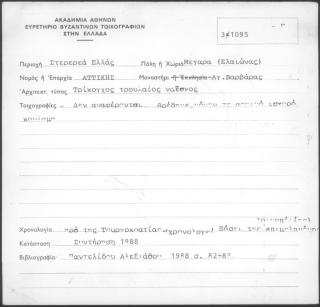 ΑΚΑΔΗΜΙΑ ΑΘΗΝΩΝ
ΕΥΡΕΤΗΡΙΟ ΒΥΖΑΝΤΙΝΩΝ ΤΟΙΧΟΓΡΑΦΙΩΝ
ΣΤΗΝ ΕΛΛΑΔΑ
3/1095
Περιοχή Στερερεά Ελλάς Πόλη ή Χωριό Μεγαρα (Ελαιώνας)
Νομός ή Επαρχία ΑΤΤΙΚΗΣ Μοναστήρι ή Εκκλησία Αγ. Βαρβάρας
Αρχιτεκτ. τύπος Τρίκογχος τρουλαίος
Τοιχογραφίες - Δεν αναφέρονται.
Χρονολογία της Τουρκοκρατίας
Κατάσταση Συντήρηση 1988
Βιβλιογραφία Παντελίδου Αλεξιάδου 1988 σ. 82-83